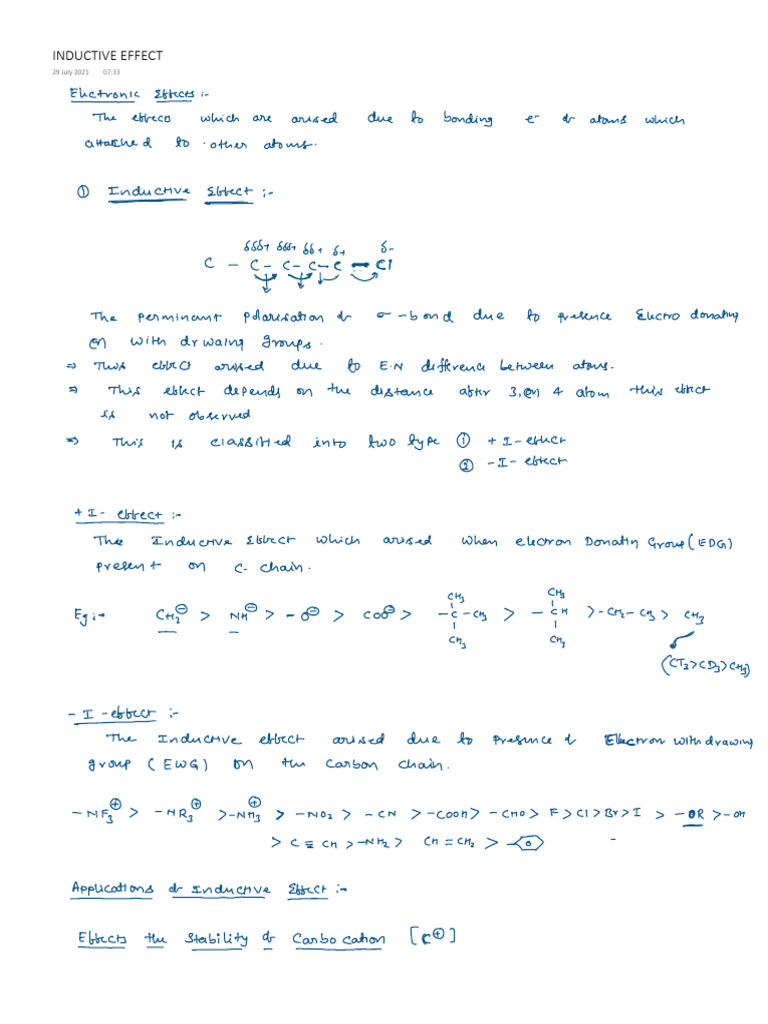 INDUCTIVE EFFECT
29 July 2021 07:33
Electronic Effects :-
The effects which are arised due to bonding e⁻ of atoms which
attached to other atoms.
① Inductive Effect :-
δδδ+ δδδ+ δδ+ δ+ δ-
C - C - C - C - C - Cl
The perminant polarisation of σ-bond due to presence Electro donating
or with drwaing groups.
⇒ This effect arised due to E.N difference between atoms.
⇒ This effect depends on the distance after 3, or 4 atom this effect
is not observed
⇒ This is classified into two type ① +I-effect
② -I-effect
+ I- effect :-
The Inductive Effect which arised when electron Donatin Group (EDG)
present on C- chain.
Eg :- CH₂⊖ > NH⊖ > -O⊖ > COO⊖ > -C(CH₃)(CH₃)-CH₃ > -CH(CH₃)(CH₃) > -CH₂-CH₃ > CH₃
(CT₃>CD₃>CH₃)
- I -effect :-
The Inductive effect arised due to Presence of Electron withdrawing
group (EWG) on the Carbon chain.
-NF₃⊕ > -NR₃⊕ > -NH₃⊕ > -NO₂ > -CN > -COOH > -CHO > F > Cl > Br > I > -OR > -OH
> C≡CH > -NH₂ > CH=CH₂ >
Applications of Inductive Effect :-
Effects the Stability of Carbocation [C⊕]